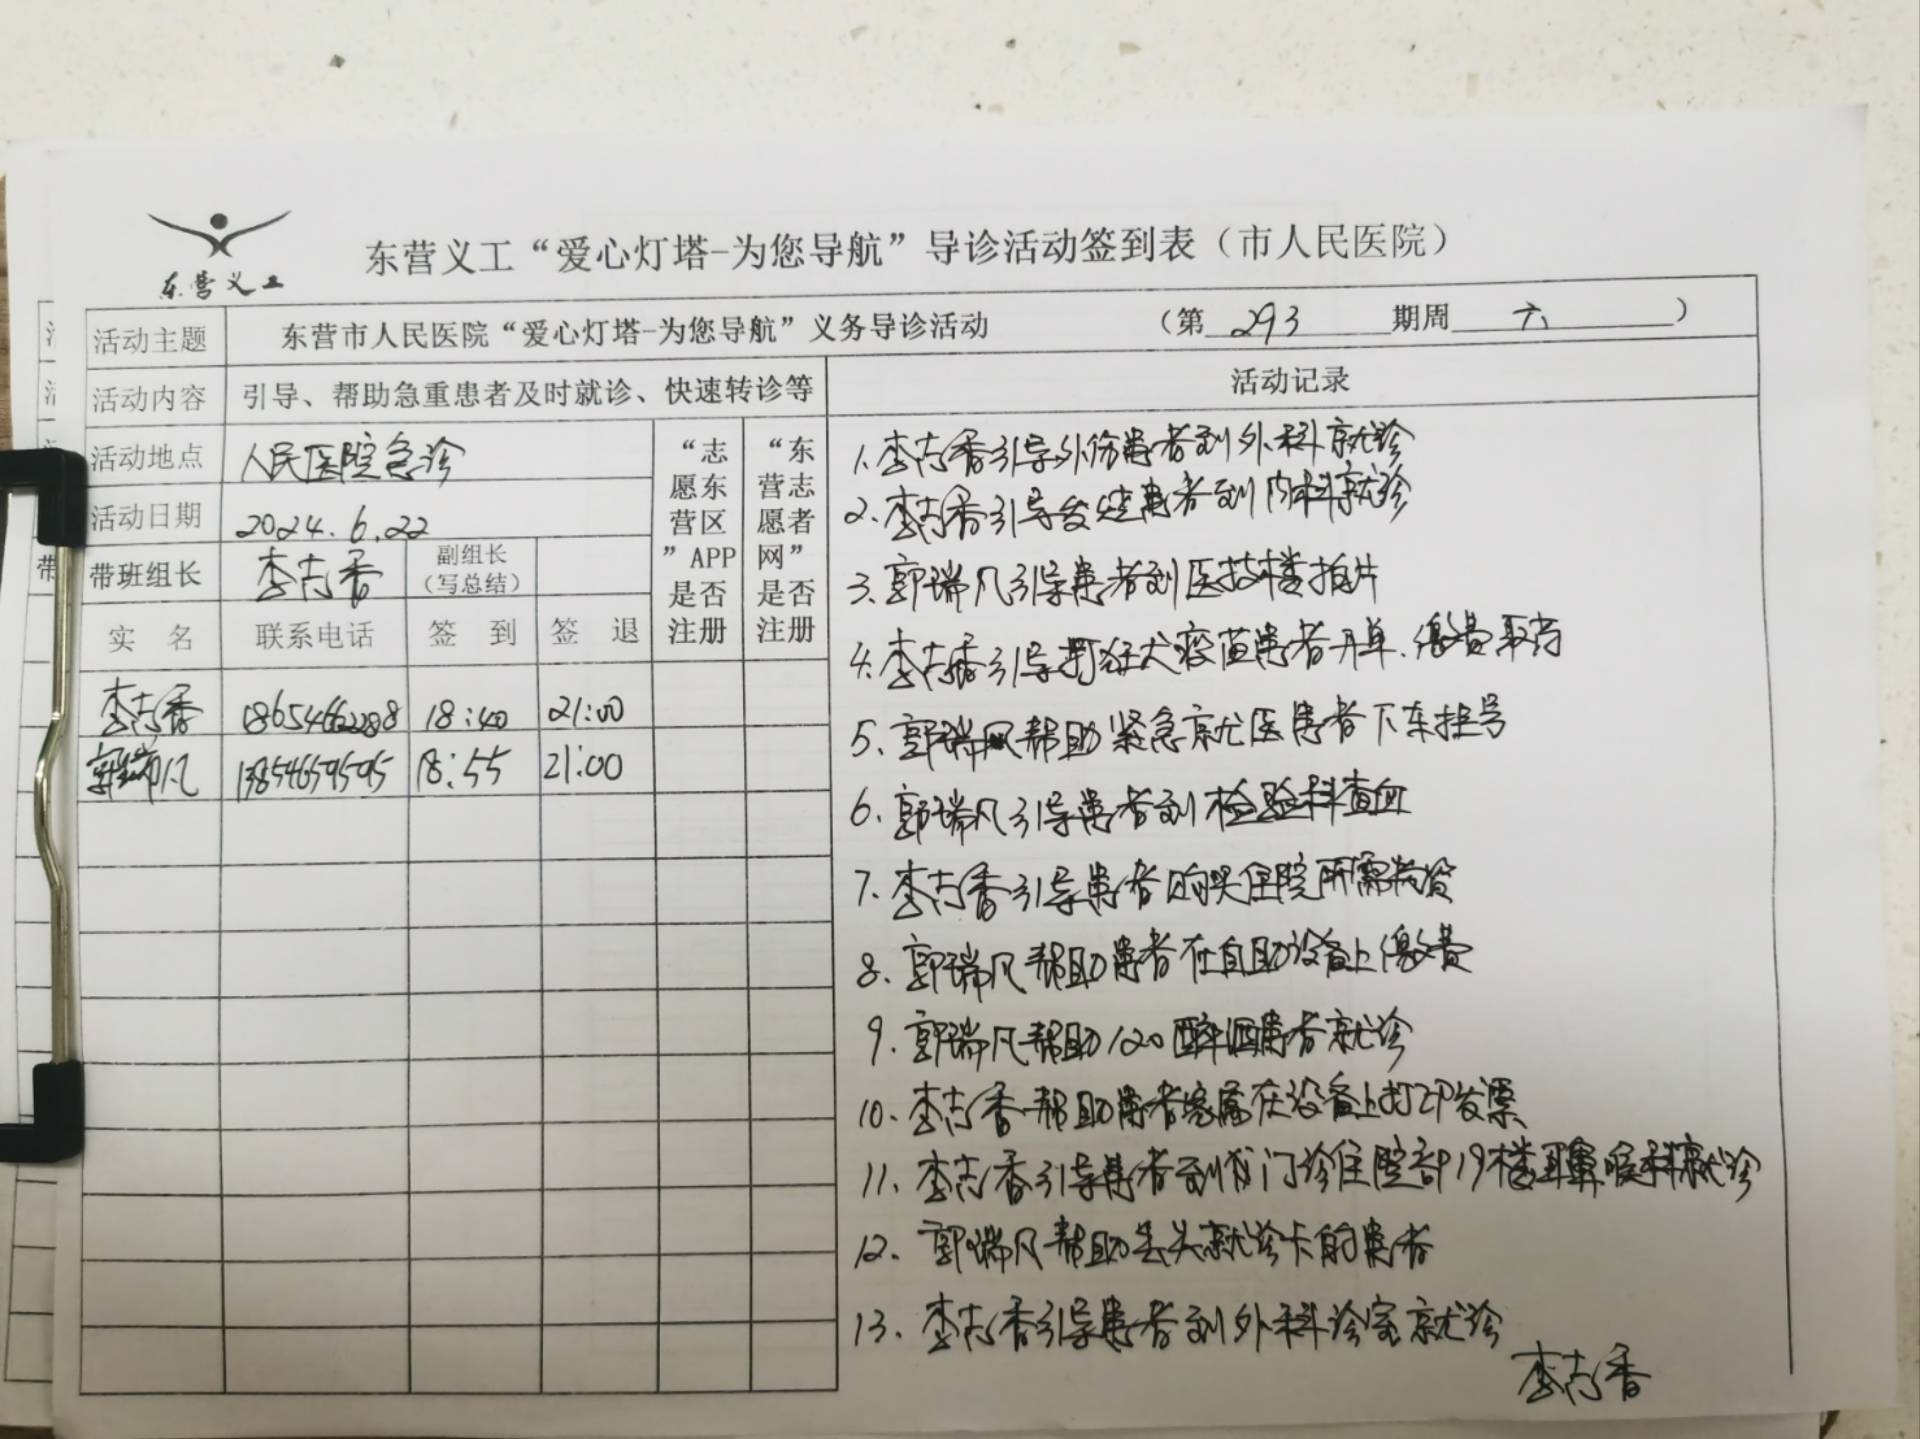 东营义工
东营义工“爱心灯塔-为您导航”导诊活动签到表（市人民医院）
活动主题 东营市人民医院“爱心灯塔-为您导航”义务导诊活动 （第 293 期周 六 ）
活动内容 引导、帮助急重患者及时就诊、快速转诊等 活动记录
活动地点 人民医院急诊
活动日期 2024.6.22
带班组长 李志香 副组长
（写总结）
“志
愿东
营区
”APP
是否
注册
“东
营志
愿者
网”
是否
注册
实 名 联系电话 签 到 签 退
李志香 18654662288 18:40 21:00
郭瑞凡 13854659595 18:55 21:00
1.李志香引导外伤患者到外科就诊
2.李志香引导发烧患者到内科就诊
3.郭瑞凡引导患者到医技楼拍片
4.李志香引导打狂犬疫苗患者开单、缴费取药
5、郭瑞凡帮助紧急就医患者下车挂号
6.郭瑞凡引导患者到检验科查血
7.李志香引导患者购买住院所需物资
8.郭瑞凡帮助患者在自助设备上缴费
9.郭瑞凡帮助120醉酒患者就诊
10.李志香帮助患者家属在设备上打印发票
11.李志香引导患者到门诊住院部19楼耳鼻喉科就诊
12.郭瑞凡帮助丢失就诊卡的患者
13.李志香引导患者到外科诊室就诊
李志香